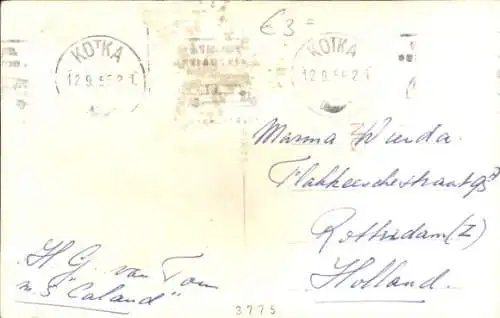 £3 =
KOTKA
12.9.55 21
KOTKA
12.9.55 21
Marma Wierda.
Flakkeeschestraat 93
Rotterdam (Z)
Holland.
H. G. van Tom
m.s "Caland"
3775